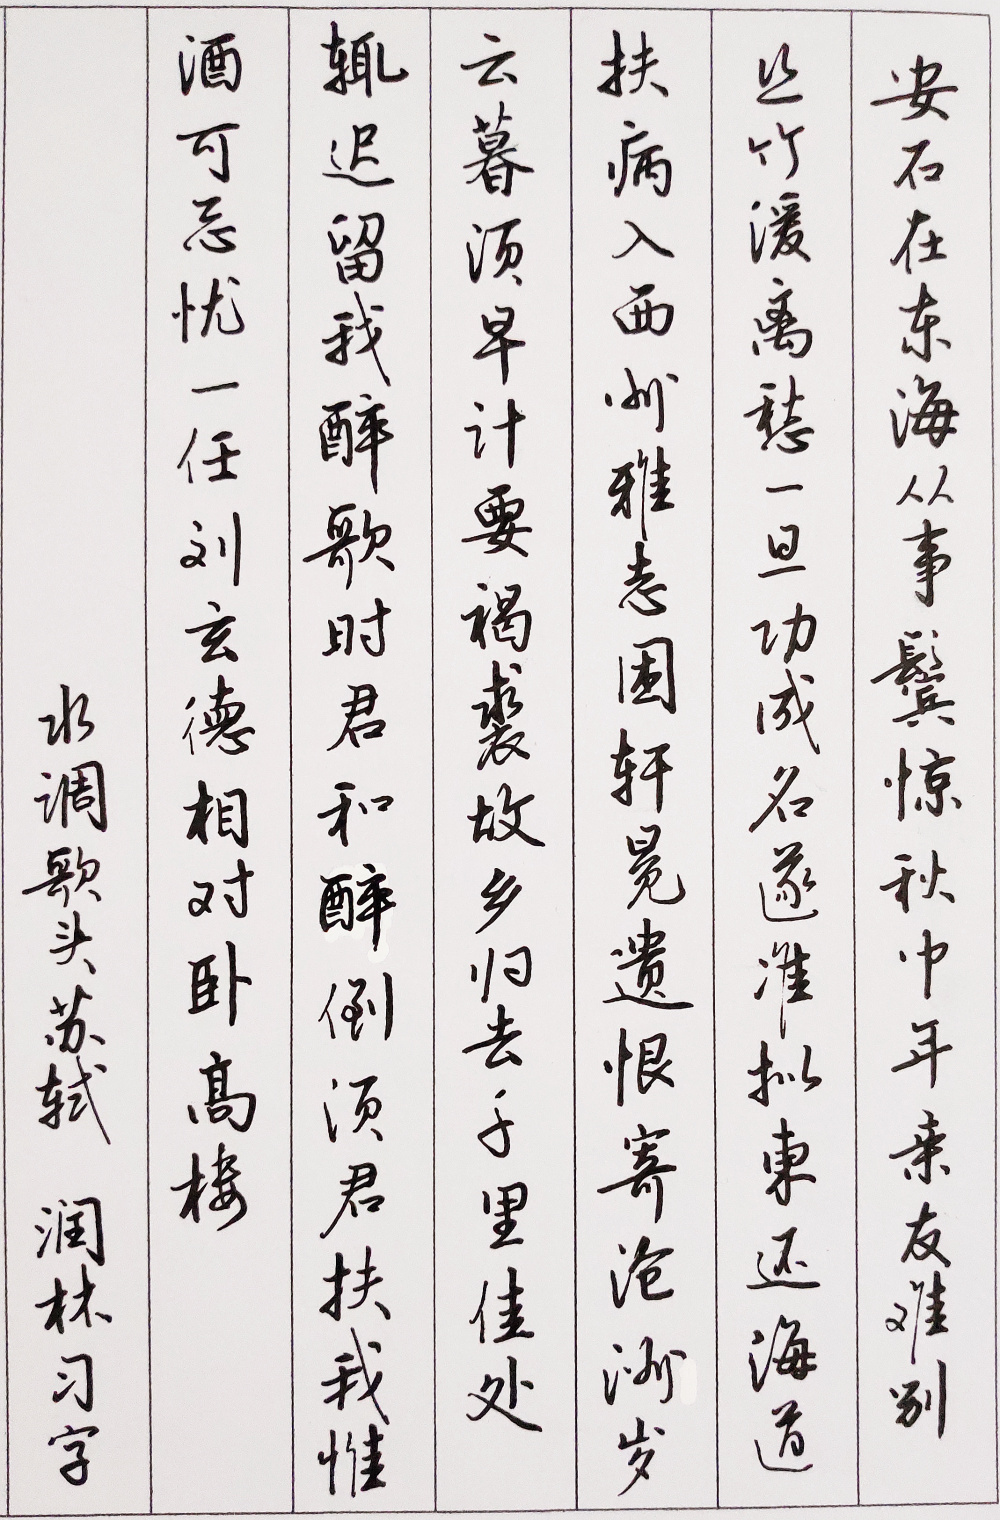 安石在东海从事鬓惊秋中年亲友难别
丝竹缓离愁一旦功成名遂准拟東还海道
扶病入西州雅志困轩冕遗恨寄沧洲岁
云暮须早计要褐裘故乡归去千里佳处
辄迟留我醉歌时君和醉倒须君扶我惟
酒可忘忧一任刘玄德相对卧高楼
水调歌头苏轼 润林习字